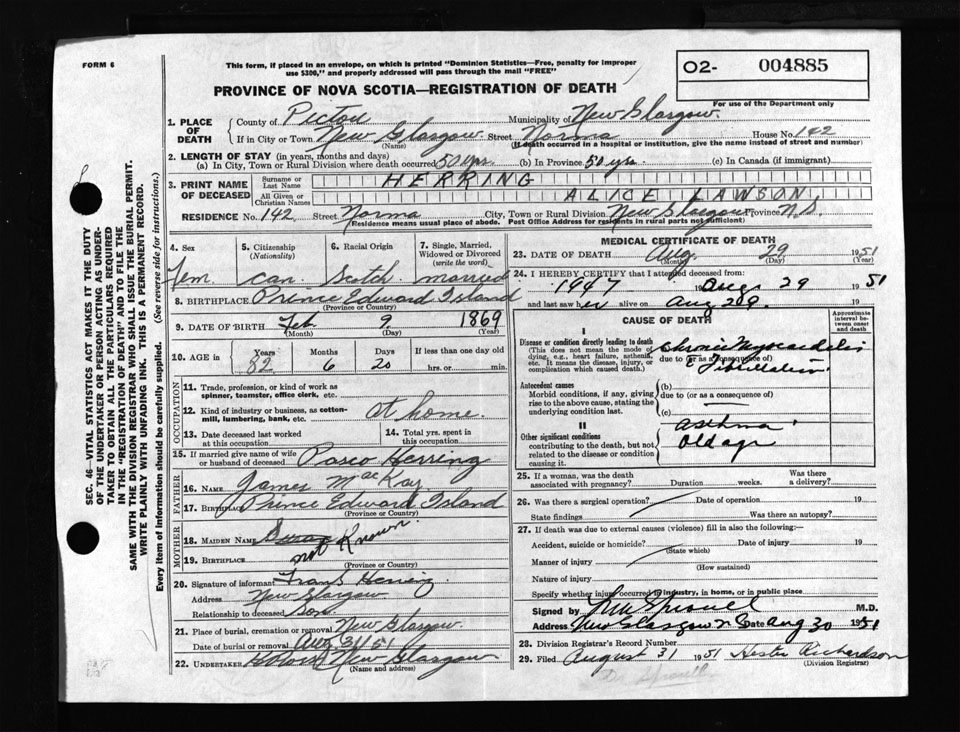 FORM 6
This form, if placed in an envelope, on which is printed "Dominion Statistics—Free, penalty for improper
use $300," and properly addressed will pass through the mail "FREE"
O2- 004885
PROVINCE OF NOVA SCOTIA—REGISTRATION OF DEATH
For use of the Department only
1. PLACE OF DEATH
County of Pictou Municipality of New Glasgow.
If in City or Town New Glasgow Street Norma House No. 142
(Name) (If death occurred in a hospital or institution, give the name instead of street and number)
2. LENGTH OF STAY (in years, months and days)
(a) In City, Town or Rural Division where death occurred 50 yrs. (b) In Province 50 yrs. (c) In Canada (if immigrant)
3. PRINT NAME OF DECEASED
Surname or Last Name HERRING
All Given or Christian Names ALICE LAWSON
RESIDENCE No. 142 Street Norma City, Town or Rural Division New Glasgow Province N.S.
(Residence means usual place of abode. Post Office Address for residents in rural parts not sufficient)
4. Sex
Fem.
5. Citizenship (Nationality)
can.
6. Racial Origin
Scotch
7. Single, Married, Widowed or Divorced (write the word)
married
8. BIRTHPLACE Prince Edward Island
(Province or Country)
9. DATE OF BIRTH Feb 9 1869
(Month) (Day) (Year)
10. AGE in Years Months Days If less than one day old
82 6 20 hrs. or min.
OCCUPATION
11. Trade, profession, or kind of work as
spinner, teamster, office clerk, etc.
12. Kind of industry or business, as cotton-
mill, lumbering, bank, etc. at home.
13. Date deceased last worked
at this occupation
14. Total yrs. spent in
this occupation
15. If married give name of wife
or husband of deceased Pasco Herring
FATHER
16. Name James MacKay
17. Birthplace Prince Edward Island
(Province or Country)
MOTHER
18. MAIDEN NAME
not Known.
19. BIRTHPLACE
(Province or Country)
20. Signature of informant Frank Herring.
Address New Glasgow
Relationship to deceased Son.
21. Place of burial, cremation or removal New Glasgow.
Date of burial or removal Aug 31/51
22. UNDERTAKER New Glasgow
(Name and address)
MEDICAL CERTIFICATE OF DEATH
23. DATE OF DEATH Aug. 29 1951
(Month) (Day) (Year)
24. I HEREBY CERTIFY that I attended deceased from:
1947 to Aug 29 1951
and last saw her alive on Aug 29. 19
CAUSE OF DEATH
Approximate interval between onset and death
I
Disease or condition directly leading to death
(This does not mean the mode of
dying, e.g. heart failure, asthenia,
etc. It means the disease, injury, or
complication which caused death.)
(a) chronic Myocarditis
due to (or as a consequence of)
Fibrillation
Antecedent causes
Morbid conditions, if any, giving
rise to the above cause, stating the
underlying condition last.
(b)
due to (or as a consequence of)
(c)
II
Other significant conditions
contributing to the death, but not
related to the disease or condition
causing it.
asthma
Old age
25. If a woman, was the death
associated with pregnancy? Duration weeks. Was there
a delivery?
26. Was there a surgical operation? Date of operation 19
State findings Was there an autopsy?
27. If death was due to external causes (violence) fill in also the following:—
Accident, suicide or homicide? Date of injury 19
(State which)
Manner of injury
(How sustained)
Nature of injury
Specify whether injury occurred in industry, in home, or in public place
Signed by M.D.
Address New Glasgow N S Date Aug 30 1951
28. Division Registrar's Record Number
29. Filed August 31 1951 Hester Richardson
(Division Registrar)
Dr. Sproull
SEC. 46 VITAL STATISTICS ACT MAKES IT THE DUTY
OF THE UNDERTAKER OR PERSON ACTING AS UNDER-
TAKER TO OBTAIN ALL THE PARTICULARS REQUIRED
IN THE "REGISTRATION OF DEATH" AND TO FILE THE
SAME WITH THE DIVISION REGISTRAR WHO SHALL ISSUE THE BURIAL PERMIT.
WRITE PLAINLY WITH UNFADING INK. THIS IS A PERMANENT RECORD.
Every item of Information should be carefully supplied. (See reverse side for instructions.)